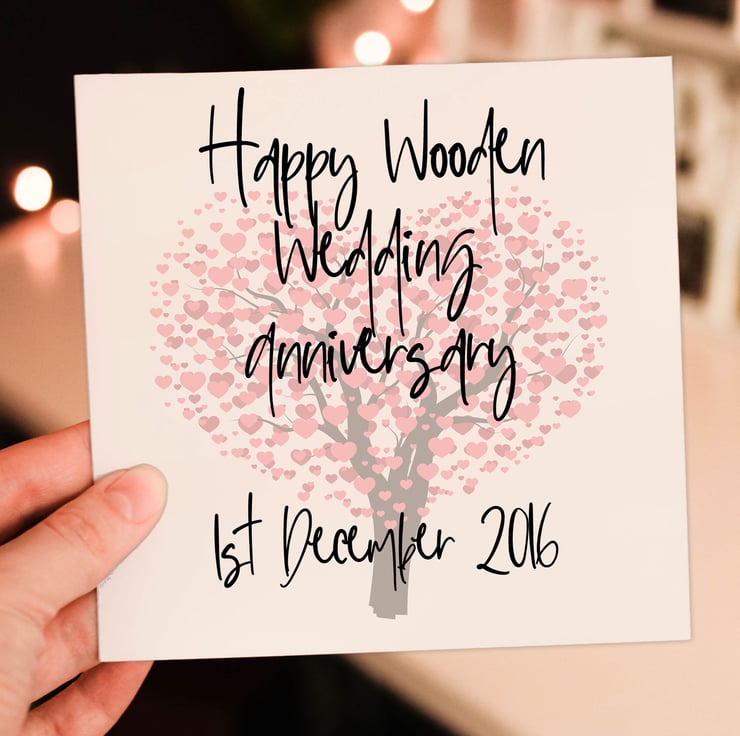 Happy Wooden
Wedding
anniversary
1st December 2016